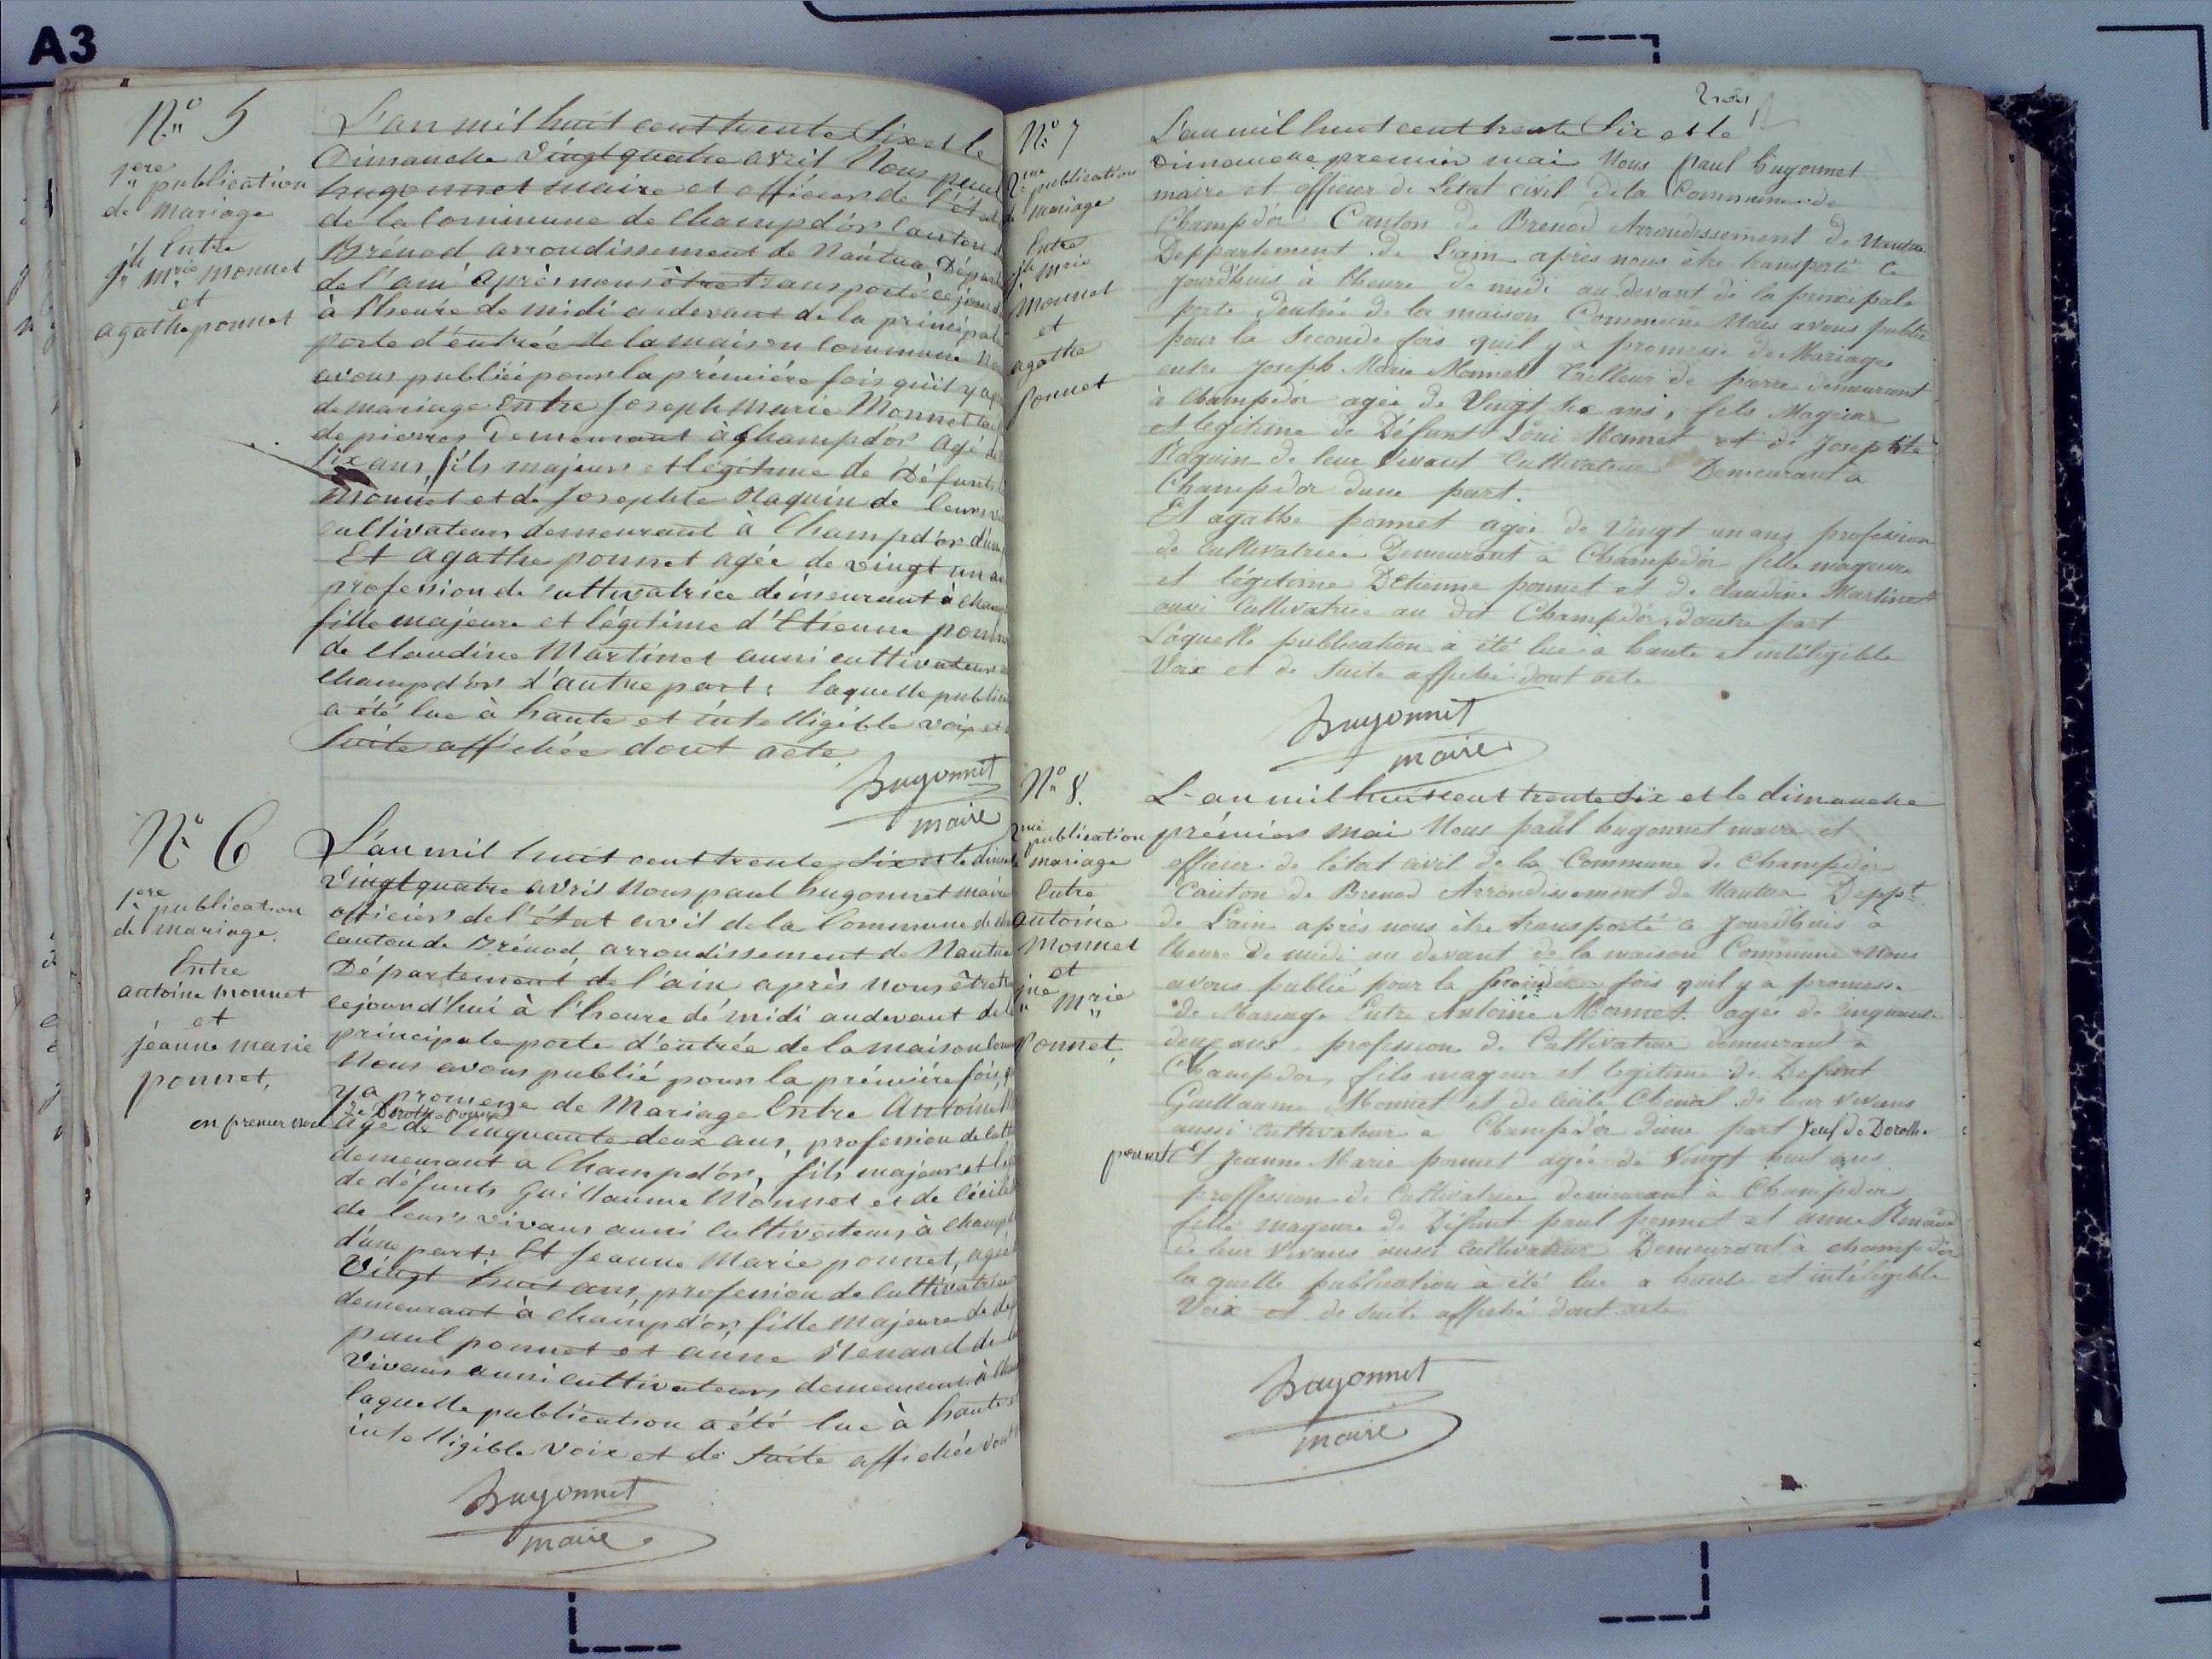 A3
N° 5
1ere publication
de mariage
Entre
jh mrie monnet
et
agathe ponnet
L'an mil huit cent trente Six et le
Dimanche vingt quatre avril Nous paul
hugonnet maire et officier de l'état
de la Commune de Champd'or Canton
Brénod arrondissement de Nantua, Départ
de l'ain après nous être transporté ce jourd
à l'heure de midi au devant de la principale
porte d'entrée de la maison Commune
avons publiée pour la prémiére fois qu'il y a
de mariage Entre Joseph marie Monnet
de pierres Demeurant à Champd'or agé de
six ans, fils majeur et légitime de Défunts
Monnet et de Josephte Raquin de leurs
cultivateurs demeurant à Champd'or d'une
Et agathe ponnet agée de vingt un ans
profession de cultivatrice demeurant à Cham
fille majeure et légitime d'Etienne ponnet
de Claudine Martinet aussi cultivateurs
Champd'or d'autre part: laquelle public
a été lue à haute et intelligible voix et
Suite affichée dont acte.
hugonnet
maire
N° 6
1ere publication
de mariage.
Entre
antoine monnet
et
jéanne marie
ponnet,
en premier
L'an mil huit cent trente Six et le dim
Vingt quatre avril Nous paul hugonnet maire
officier de l'état civil de la Commune de
canton de Brénod, arrondissement de Nantua
Département de l'ain après nous être
cejourd'hui à l'heure de midi au devant de
principale porte d'entrée de la maison Com
Nous avons publié pour la prémiére fois,
y a promesse de Mariage Entre Antoine
de Dorothe ponnet
agé de Cinquante deux ans, profession de
demeurant a Champd'or, fils majeur et
de défunts Guillaume Monnet et de Cécile
de leurs vivans aussi Cultivateurs à Champ
d'une part: Et Jeanne Marie ponnet, agée
Vingt huit ans, profession de Cultivatrice
demeurant à Champd'or, fille Majeure de
paul ponnet et anne Renaud de
Vivans aussi cultivateurs demeurant à
laquelle publication a été lue à haute
intelligible voix et de Suite affichée dont
hugonnet
maire
N° 7
2me publication
de mariage
Entre
jh mrie
monnet
et
agathe
Ponnet
L'an mil huit cent trente Six et le
Dimanche premier mai Nous paul hugonnet
maire et officier de Létat civil de la Commune de
Champdor Canton de Brenod Arrondissement de Nantua
Deppartement de Lain après nous être transporté ce
jourdhuis à Lheure de midi au devant de la principale
porte dentrée de la maison Commune Nous avons publié
pour la Seconde fois quil y à promesse de Mariage
entre Joseph Marie Monnet Tailleur de pierre demeurant
à Champdor agée de Vingt Six ans, fils Magieur
et legitime de Défunt Loui Monnet et de Josephte
Raquin de leur Vivant Cultivateur Demeurant a
Champdor dune part.
Et agathe ponnet agée de Vingt un ans profession
de Cultivatrice Demeurant à Champdor fille mageure
et légitime DEtienne ponnet et de claudine Martinet
aussi Cultivatrice au dit Champdor, dautre part
Laquelle publication à été lue à haute et intéligible
Voix et de Suite affiché dont acte
hugonnet
maire
N° 8.
2me publication
de mariage
Entre
antoine
Monnet
et
jne mrie
Ponnet
L'an mil huit cent trente Six et le dimanche
prémier mai Nous paul hugonnet maire et
officier de létat civil de la Commune de Champdor
Canton de Brenod Arrondissement de Nantua Deppt
de Lain après nous être transporté ce jourdhuis à
lheure de midi au devant de la maison Commune Nous
avons publié pour la fois quil y a promesse
de Mariage Entre Antoine Monnet agée de Cinquante
deux ans profession de Cultivateur demeurant à
Champdor, fils mageur et legitime de Defunt
Guillaume Monnet et de Cécile Chenal de leur vivans
aussi cultivateur a Champdor dune part veuf de Dorothe
ponnet Et Jeanne Marie ponnet agée de Vingt huit ans
proffession de Cultivatrice demeurant à Champdor
fille mageure de Défunt paul ponnet et anne Renaud
de leur Vivans aussi Cultivateur Demeurant à champdor
laquelle publication à été lue a haute et intéligible
Voix et de Suite affiché dont acte
hugonnet
maire